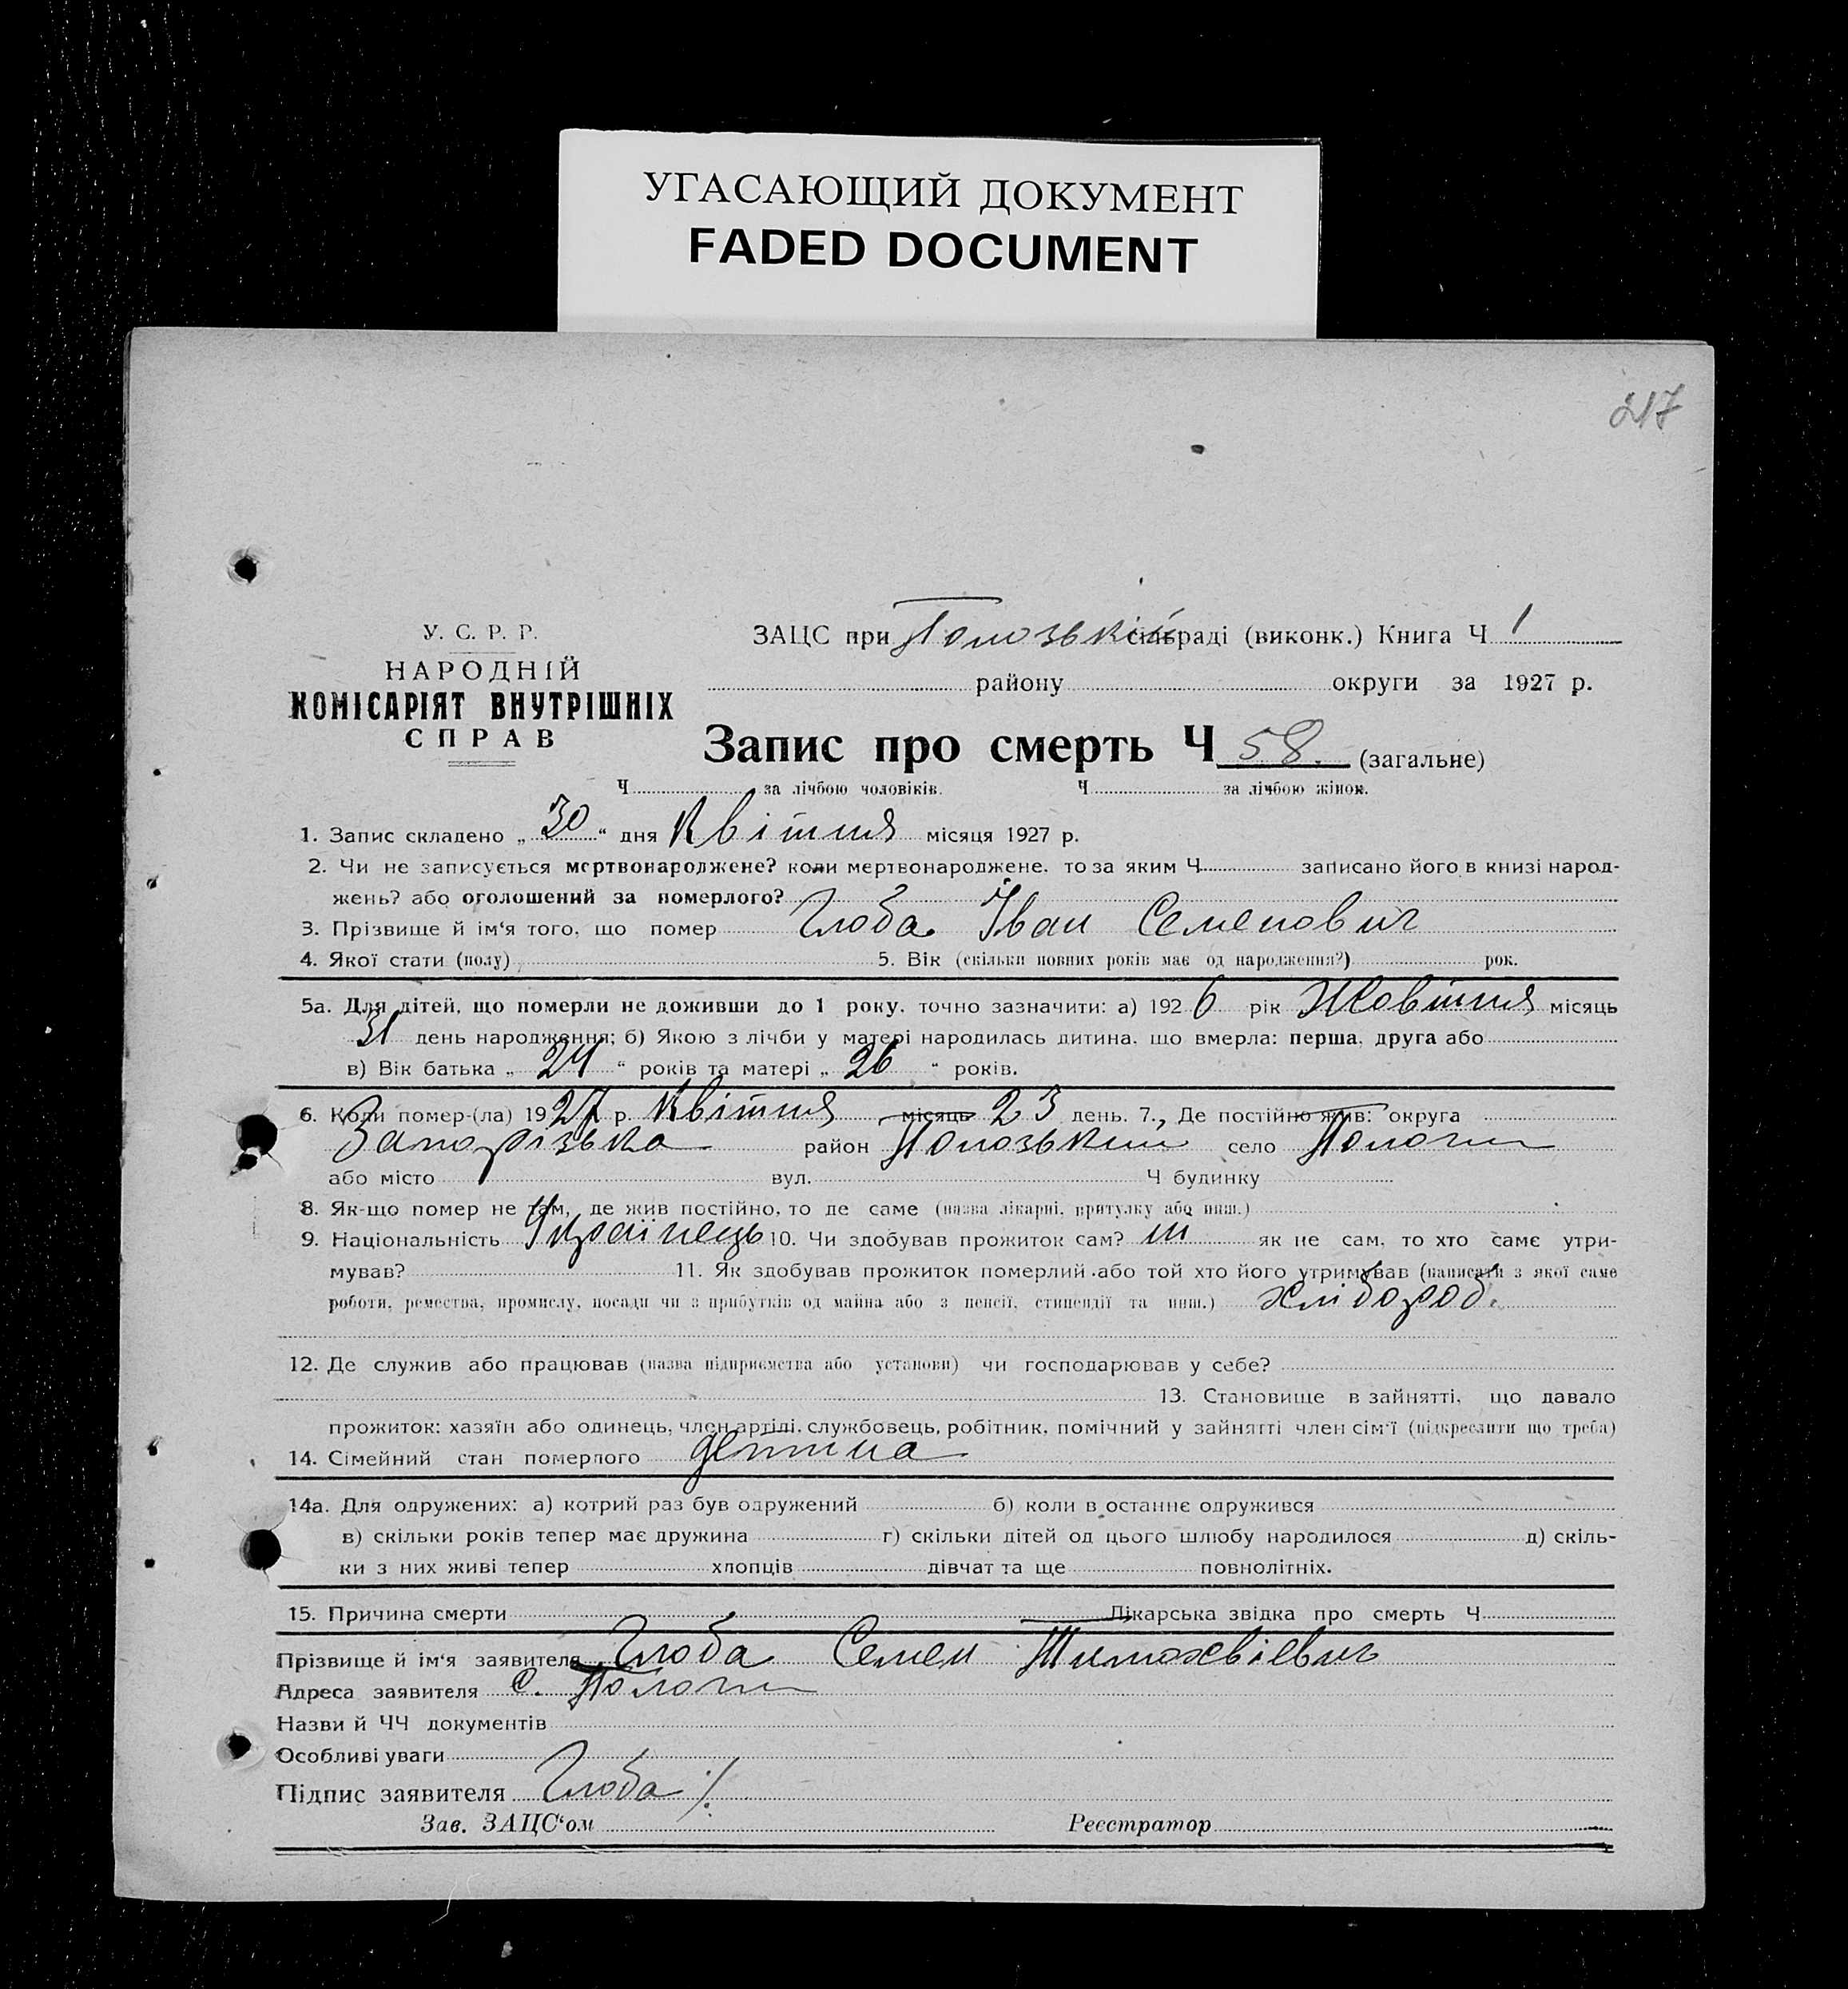 УГАСАЮЩИЙ ДОКУМЕНТ
FADED DOCUMENT
217
У. С. Р. Р.
НАРОДНІЙ
КОМІСАРІЯТ ВНУТРІШНІХ
СПРАВ
ЗАЦС при Полозькій сільраді (виконк.) Книга Ч 1
району округи за 1927 р.
Запис про смерть Ч 58. (загальне)
Ч за лічбою чоловіків. Ч за лічбою жінок.
1. Запис складено „ 30 “ дня Квітня місяця 1927 р.
2. Чи не записується мертвонароджене? коли мертвонароджене, то за яким Ч записано його в книзі народ-
жень? або оголошений за померлого?
3. Прізвище й ім‘я того, що помер Глоба Іван Семенович
4. Якої стати (полу) 5. Вік (скільки повних років має од народження?) рок.
5а. Для дітей, що померли не доживши до 1 року, точно зазначити: а) 192 6 рік Жовтня місяць
31 день народження; б) Якою з лічби у матері народилась дитина, що вмерла: перша, друга або
в) Вік батька „ 24 “ років та матері „ 26 “ років.
6. Коли помер-(ла) 1927 р. Квітня місяць 23 день. 7., Де постійно жив: округа
Запорізька район Полозький село Пологи
або місто вул. Ч будинку
8. Як-що помер не там, де жив постійно, то де саме (назва лікарні, притулку або инш.)
9. Національність Українець 10. Чи здобував прожиток сам? ні як не сам, то хто саме утри-
мував? 11. Як здобував прожиток померлий або той хто його утримував (написати з якої саме
роботи, ремества, промислу, посади чи з прибутків од майна або з пенсії, стипендії та инш.) хлібороб.
12. Де служив або працював (назва підприємства або установи) чи господарював у себе?
13. Становище в зайнятті, що давало
прожиток: хазяїн або одинець, член артілі, службовець, робітник, помічний у зайнятті член сім‘ї (підкреслити що треба)
14. Сімейний стан померлого детина
14а. Для одружених: а) котрий раз був одружений б) коли в останнє одружився
в) скільки років тепер має дружина г) скільки дітей од цього шлюбу народилося д) скіль-
ки з них живі тепер хлопців дівчат та ще повнолітніх.
15. Причина смерти Лікарська звідка про смерть Ч
Прізвище й ім‘я заявителя Глоба Семен Тимохвієвич
Адреса заявителя с. Пологи
Назви й ЧЧ документів
Особливі уваги
Підпис заявителя Глоба
Зав. ЗАЦС‘ом Реєстратор